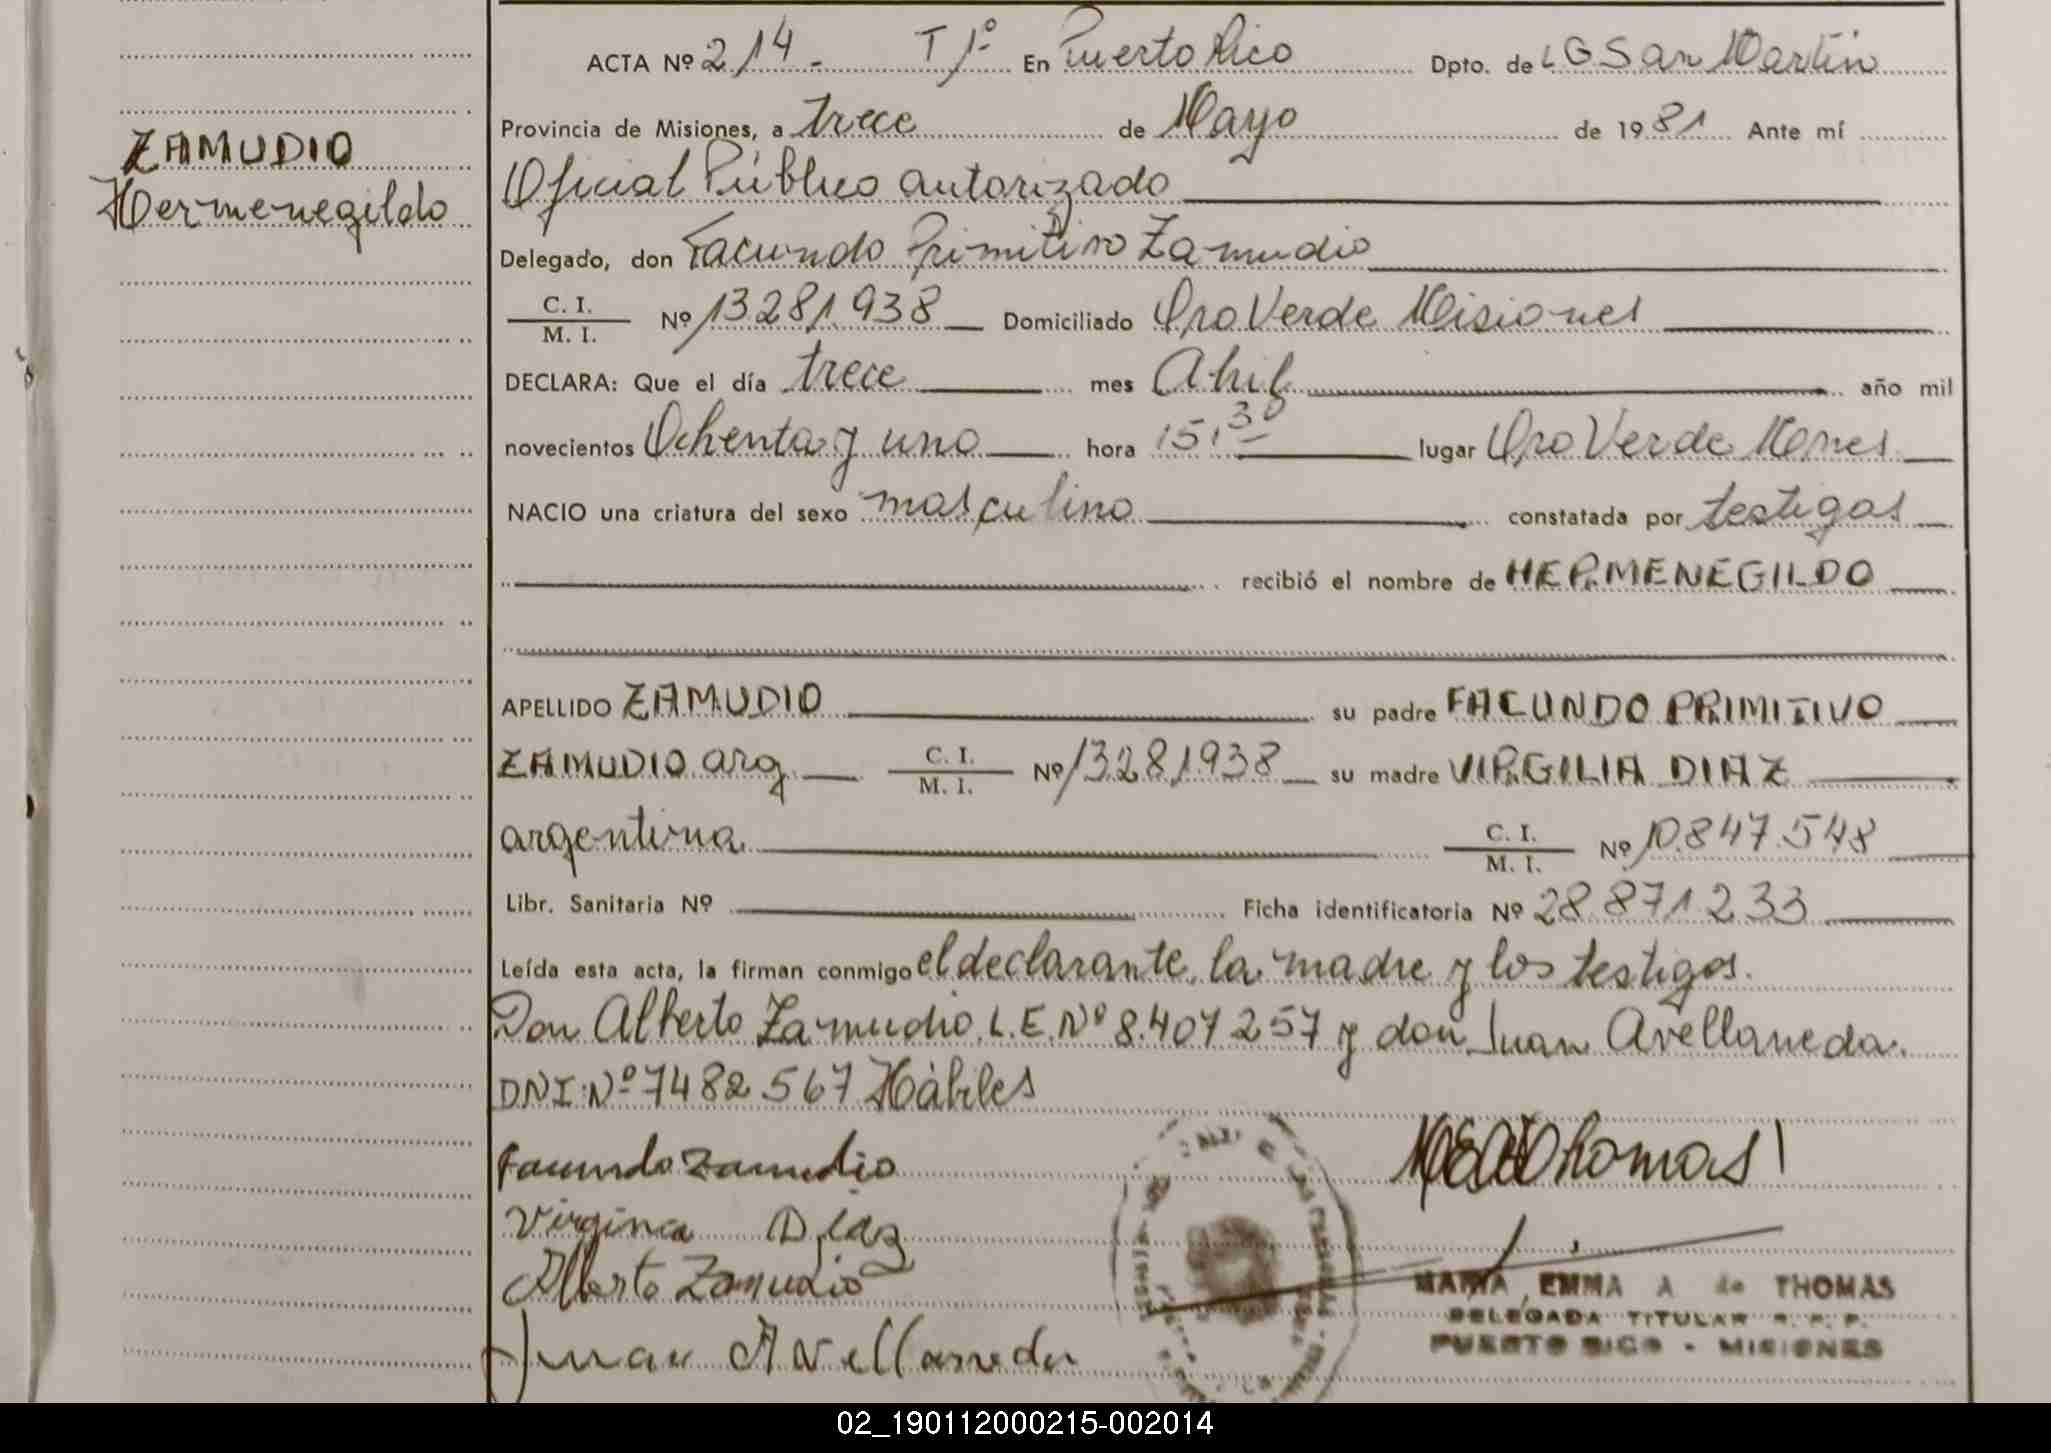 ACTA Nº 214.- T 1º En Puerto Rico Dpto. de L G San Martín
Provincia de Misiones, a trece de Mayo de 1981 Ante mí
ZAMUDIO
Hermenegildo
Oficial Público autorizado
Delegado, don Facundo Primitivo Zamudio
C. I. / M. I. Nº 13281.938 Domiciliado Oro Verde Misiones
DECLARA: Que el día trece mes Abril año mil
novecientos Ochenta y uno hora 15,30 lugar Oro Verde Mnes
NACIO una criatura del sexo masculino constatada por testigos
recibió el nombre de HERMENEGILDO
APELLIDO ZAMUDIO su padre FACUNDO PRIMITIVO
ZAMUDIO arg. C. I. / M. I. Nº 13.281.938 su madre VIRGILIA DIAZ
argentina C. I. / M. I. Nº 10.847.548
Libr. Sanitaria Nº Ficha identificatoria Nº 28.871.233
Leída esta acta, la firman conmigo el declarante, la madre y los testigos.
Don Alberto Zamudio. L.E.Nº 8.407.257 y don Juan Avellaneda.
DNI.Nº 7482.567 Hábiles
Facundo Zamudio
Thomas
Virgina Diaz
Alberto Zamudio
MARIA EMMA A de THOMAS
DELEGADA TITULAR R. P. P.
PUERTO RICO - MISIONES
Juan Avellaneda
02_190112000215-002014